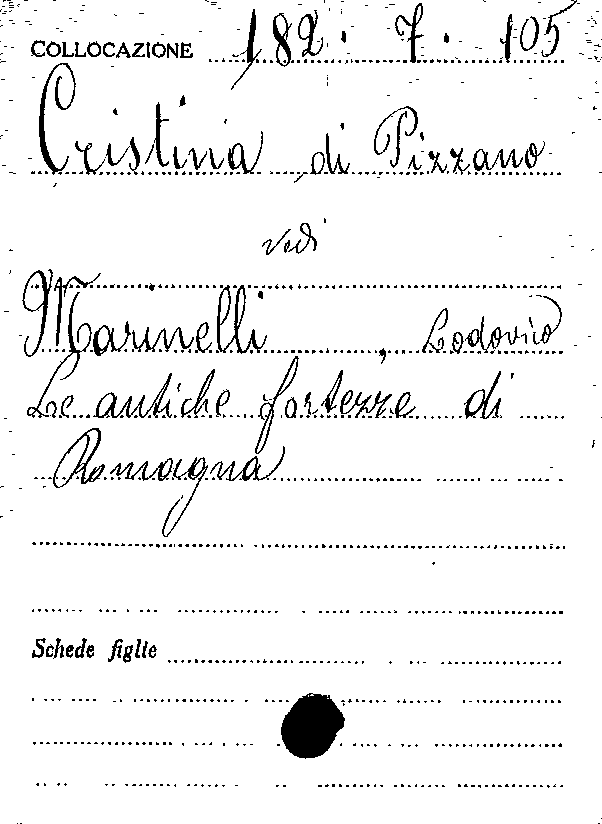 COLLOCAZIONE 182 . 7 . 105
Cristina di Pizzano
vedi
Marinelli , Lodovico
Le antiche fortezze di
Romagna
Schede figlie